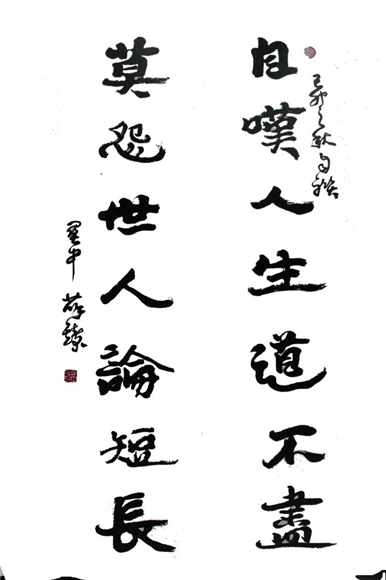 自嘆人生道不盡
莫怨世人論短長